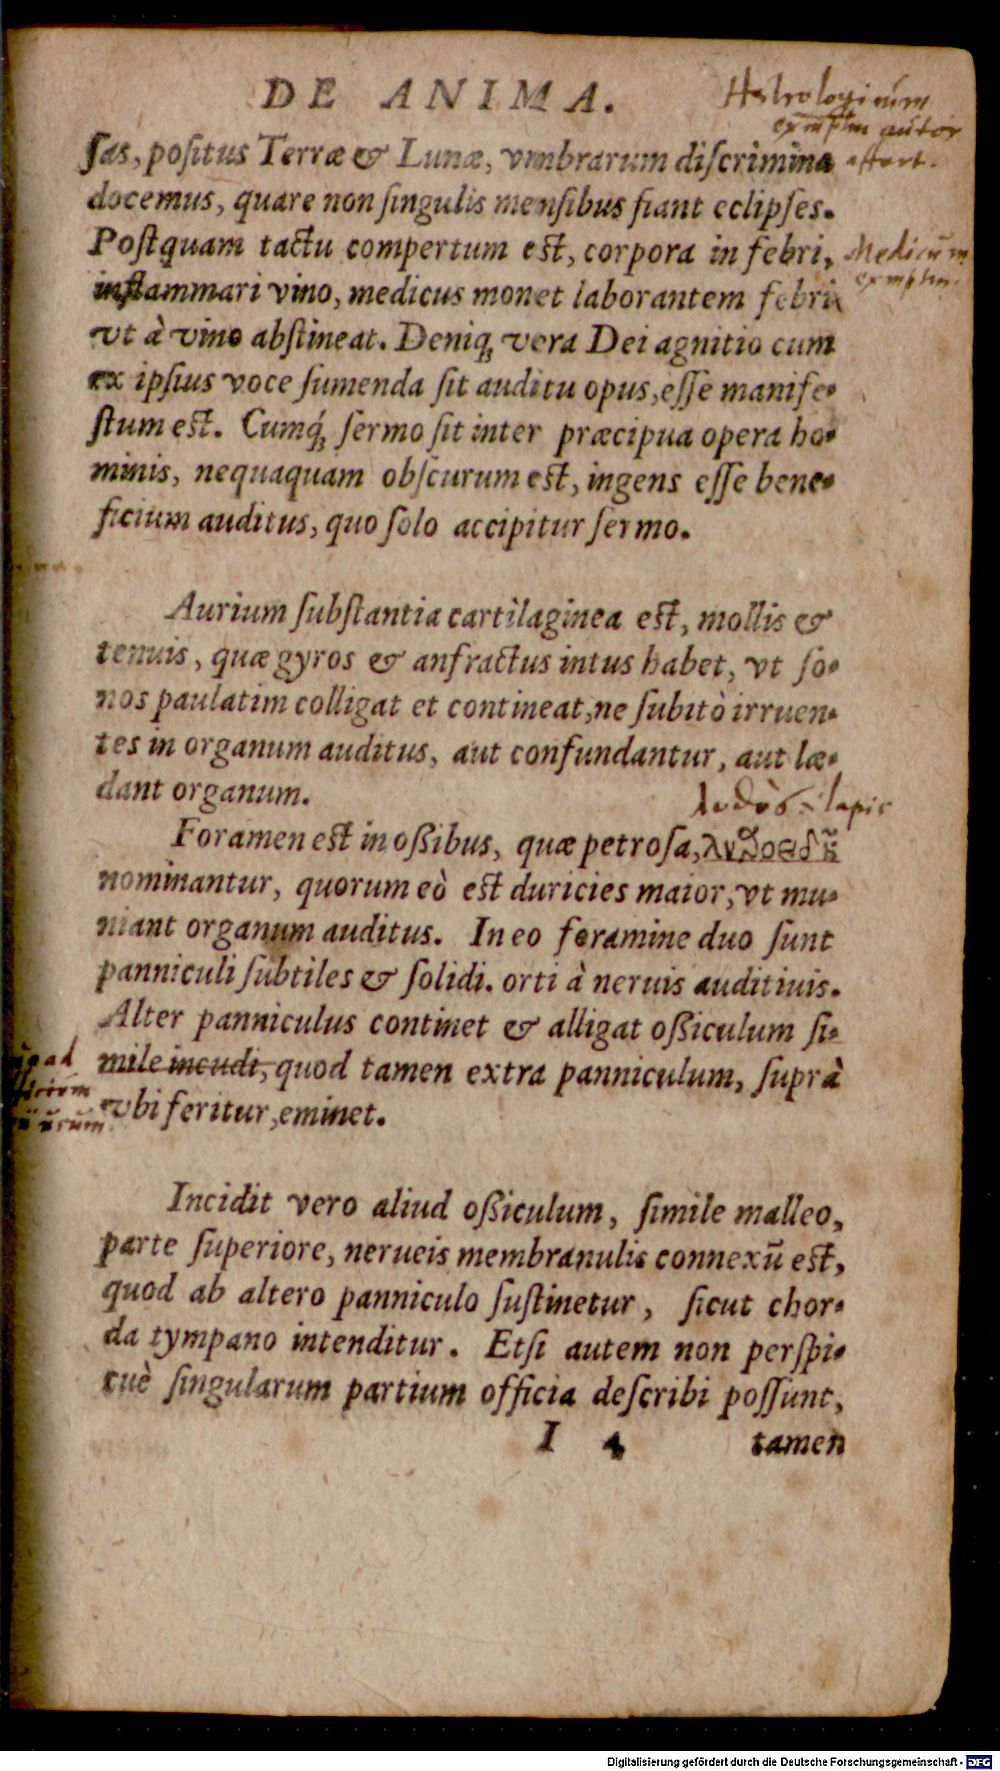 DE ANIMA.
Astrologicum
exmplm autor
affert.
ſas, poſitus Terræ & Lunæ, vmbrarum diſcrimina
docemus, quare non ſingulis menſibus fiant eclipſes.
Poſtquam tactu compertum eſt, corpora in febri,
Medicum
exmplm.
inflammari vino, medicus monet laborantem febri
vt à vino abſtineat. Deniq; vera Dei agnitio cum
ex ipſius voce ſumenda ſit auditu opus, eſſe manife-
ſtum eſt. Cumq́; ſermo ſit inter præcipua opera ho-
minis, nequaquam obſcurum eſt, ingens eſſe bene-
ficium auditus, quo ſolo accipitur ſermo.
Aurium ſubſtantia cartilaginea eſt, mollis &
tenuis, quæ gyros & anfractus intus habet, vt ſo-
nos paulatim colligat et contineat, ne ſubitò irruen-
tes in organum auditus, aut confundantur, aut læ-
dant organum.
lapis
Foramen eſt in oßibus, quæ petroſa,
nominantur, quorum eò eſt duricies maior, vt mu-
niant organum auditus. In eo foramine duo ſunt
panniculi ſubtiles & ſolidi. orti à neruis auditiuis.
Alter panniculus continet & alligat oßiculum ſi-
ad
mile incudi, quod tamen extra panniculum, ſuprà
vbi feritur, eminet.
Incidit vero aliud oßiculum, ſimile malleo,
parte ſuperiore, nerueis membranulis connexū eſt,
quod ab altero panniculo ſuſtinetur, ſicut chor-
da tympano intenditur. Etſi autem non perſpi-
cuè ſingularum partium officia deſcribi poſſunt,
I 4 tamen
Digitalisierung gefördert durch die Deutsche Forschungsgemeinschaft - DFG